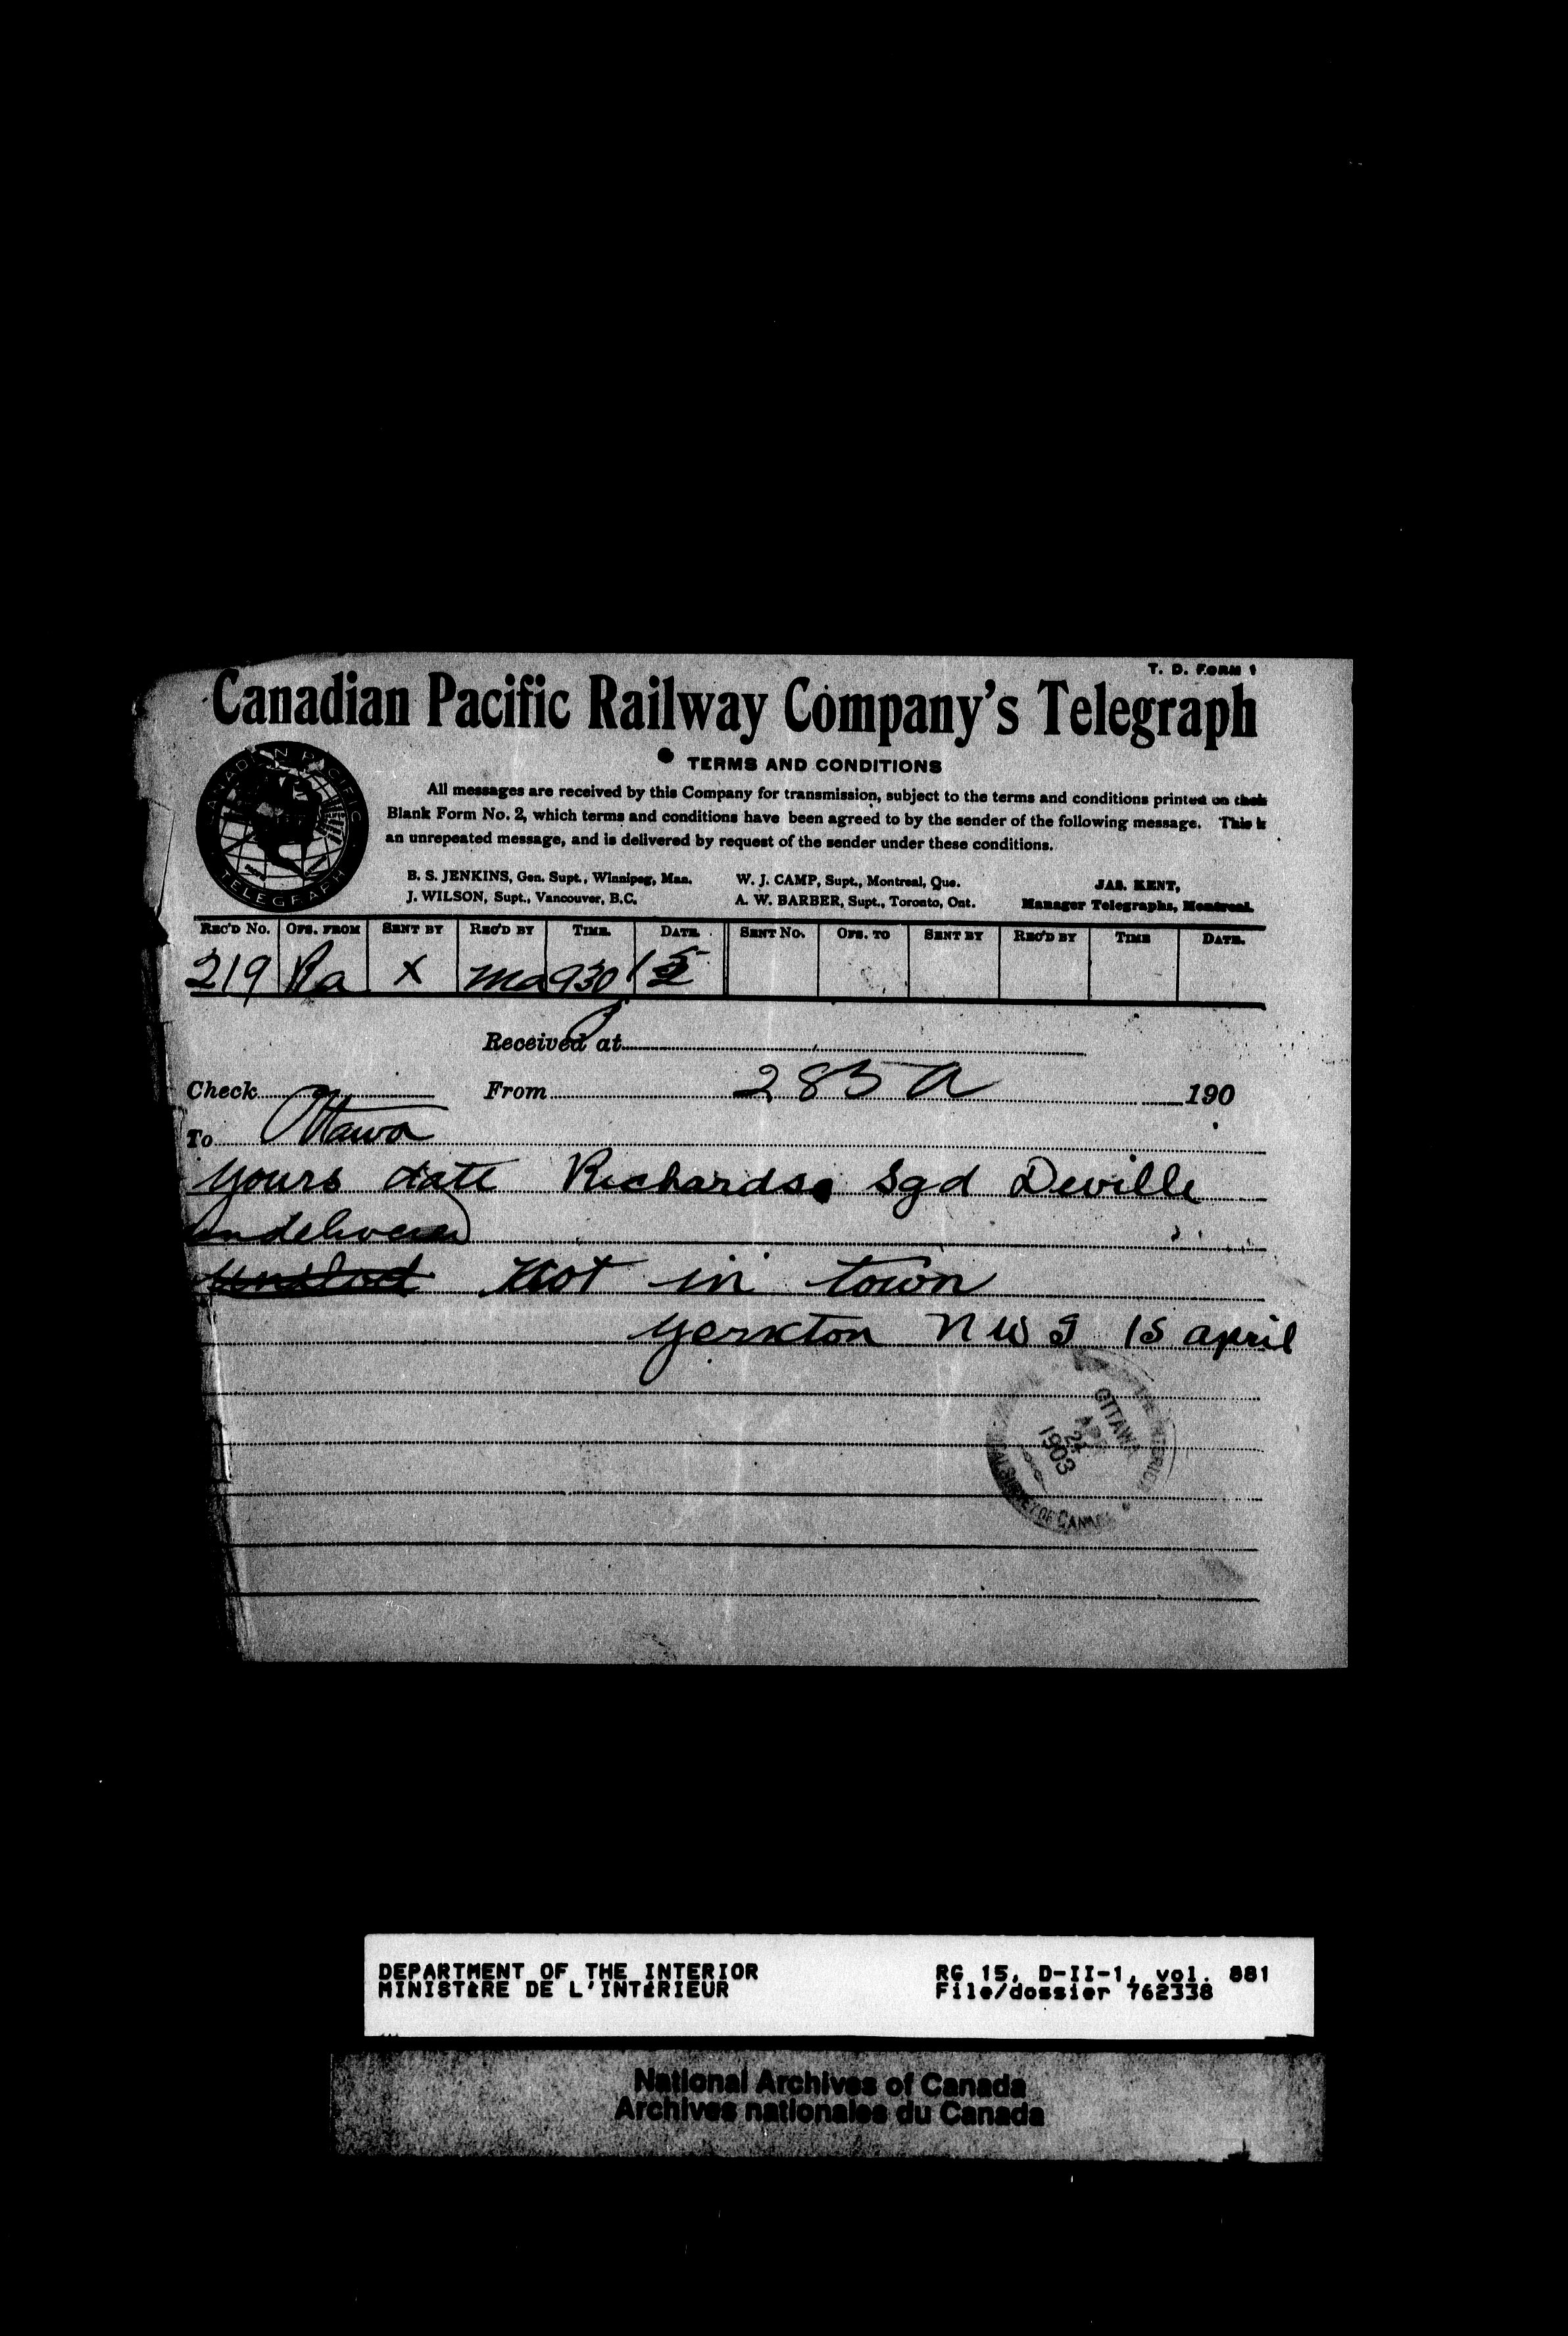 T. D. FORM 1
Canadian Pacific Railway Company's Telegraph
CANADIAN PACIFIC
TELEGRAPH
TERMS AND CONDITIONS
All messages are received by this Company for transmission, subject to the terms and conditions printed on their
Blank Form No. 2, which terms and conditions have been agreed to by the sender of the following message. This is
an unrepeated message, and is delivered by request of the sender under these conditions.
B. S. JENKINS, Gen. Supt., Winnipeg, Man. W. J. CAMP, Supt., Montreal, Que. JAS. KENT,
J. WILSON, Supt., Vancouver, B.C. A. W. BARBER, Supt., Toronto, Ont. Manager Telegraphs, Montreal.
REC'D No. OFS. FROM SENT BY REC'D BY TIME. DATE. SENT No. OFS. TO SENT BY REC'D BY TIME DATE.
219 Ra x ma 930 15
Received at
Check From 285 a 190
To Ottawa
Yours date Richards sgd Deville
undelivered
Not in town
Yorkton NWT 15 april
OTTAWA
APR
24
1903
OF CANADA
DEPARTMENT OF THE INTERIOR RG 15, D-II-1, vol. 881
MINISTÈRE DE L'INTÉRIEUR File/dossier 762338
National Archives of Canada
Archives nationales du Canada